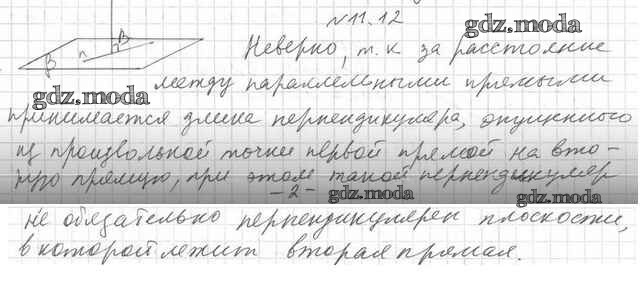 №11.12
gdz.moda
B
n
β
Неверно, т.к за расстояние
gdz.moda
между параллельными прямыми
gdz.moda
принимается длина перпендикуляра, опущенного
из произвольной точки первой прямой на вто-
рую прямую, при этом такой перпендикуляр
- 2 -
gdz.moda
gdz.moda
не обязательно перпендикулярен плоскости,
в которой лежит вторая прямая.